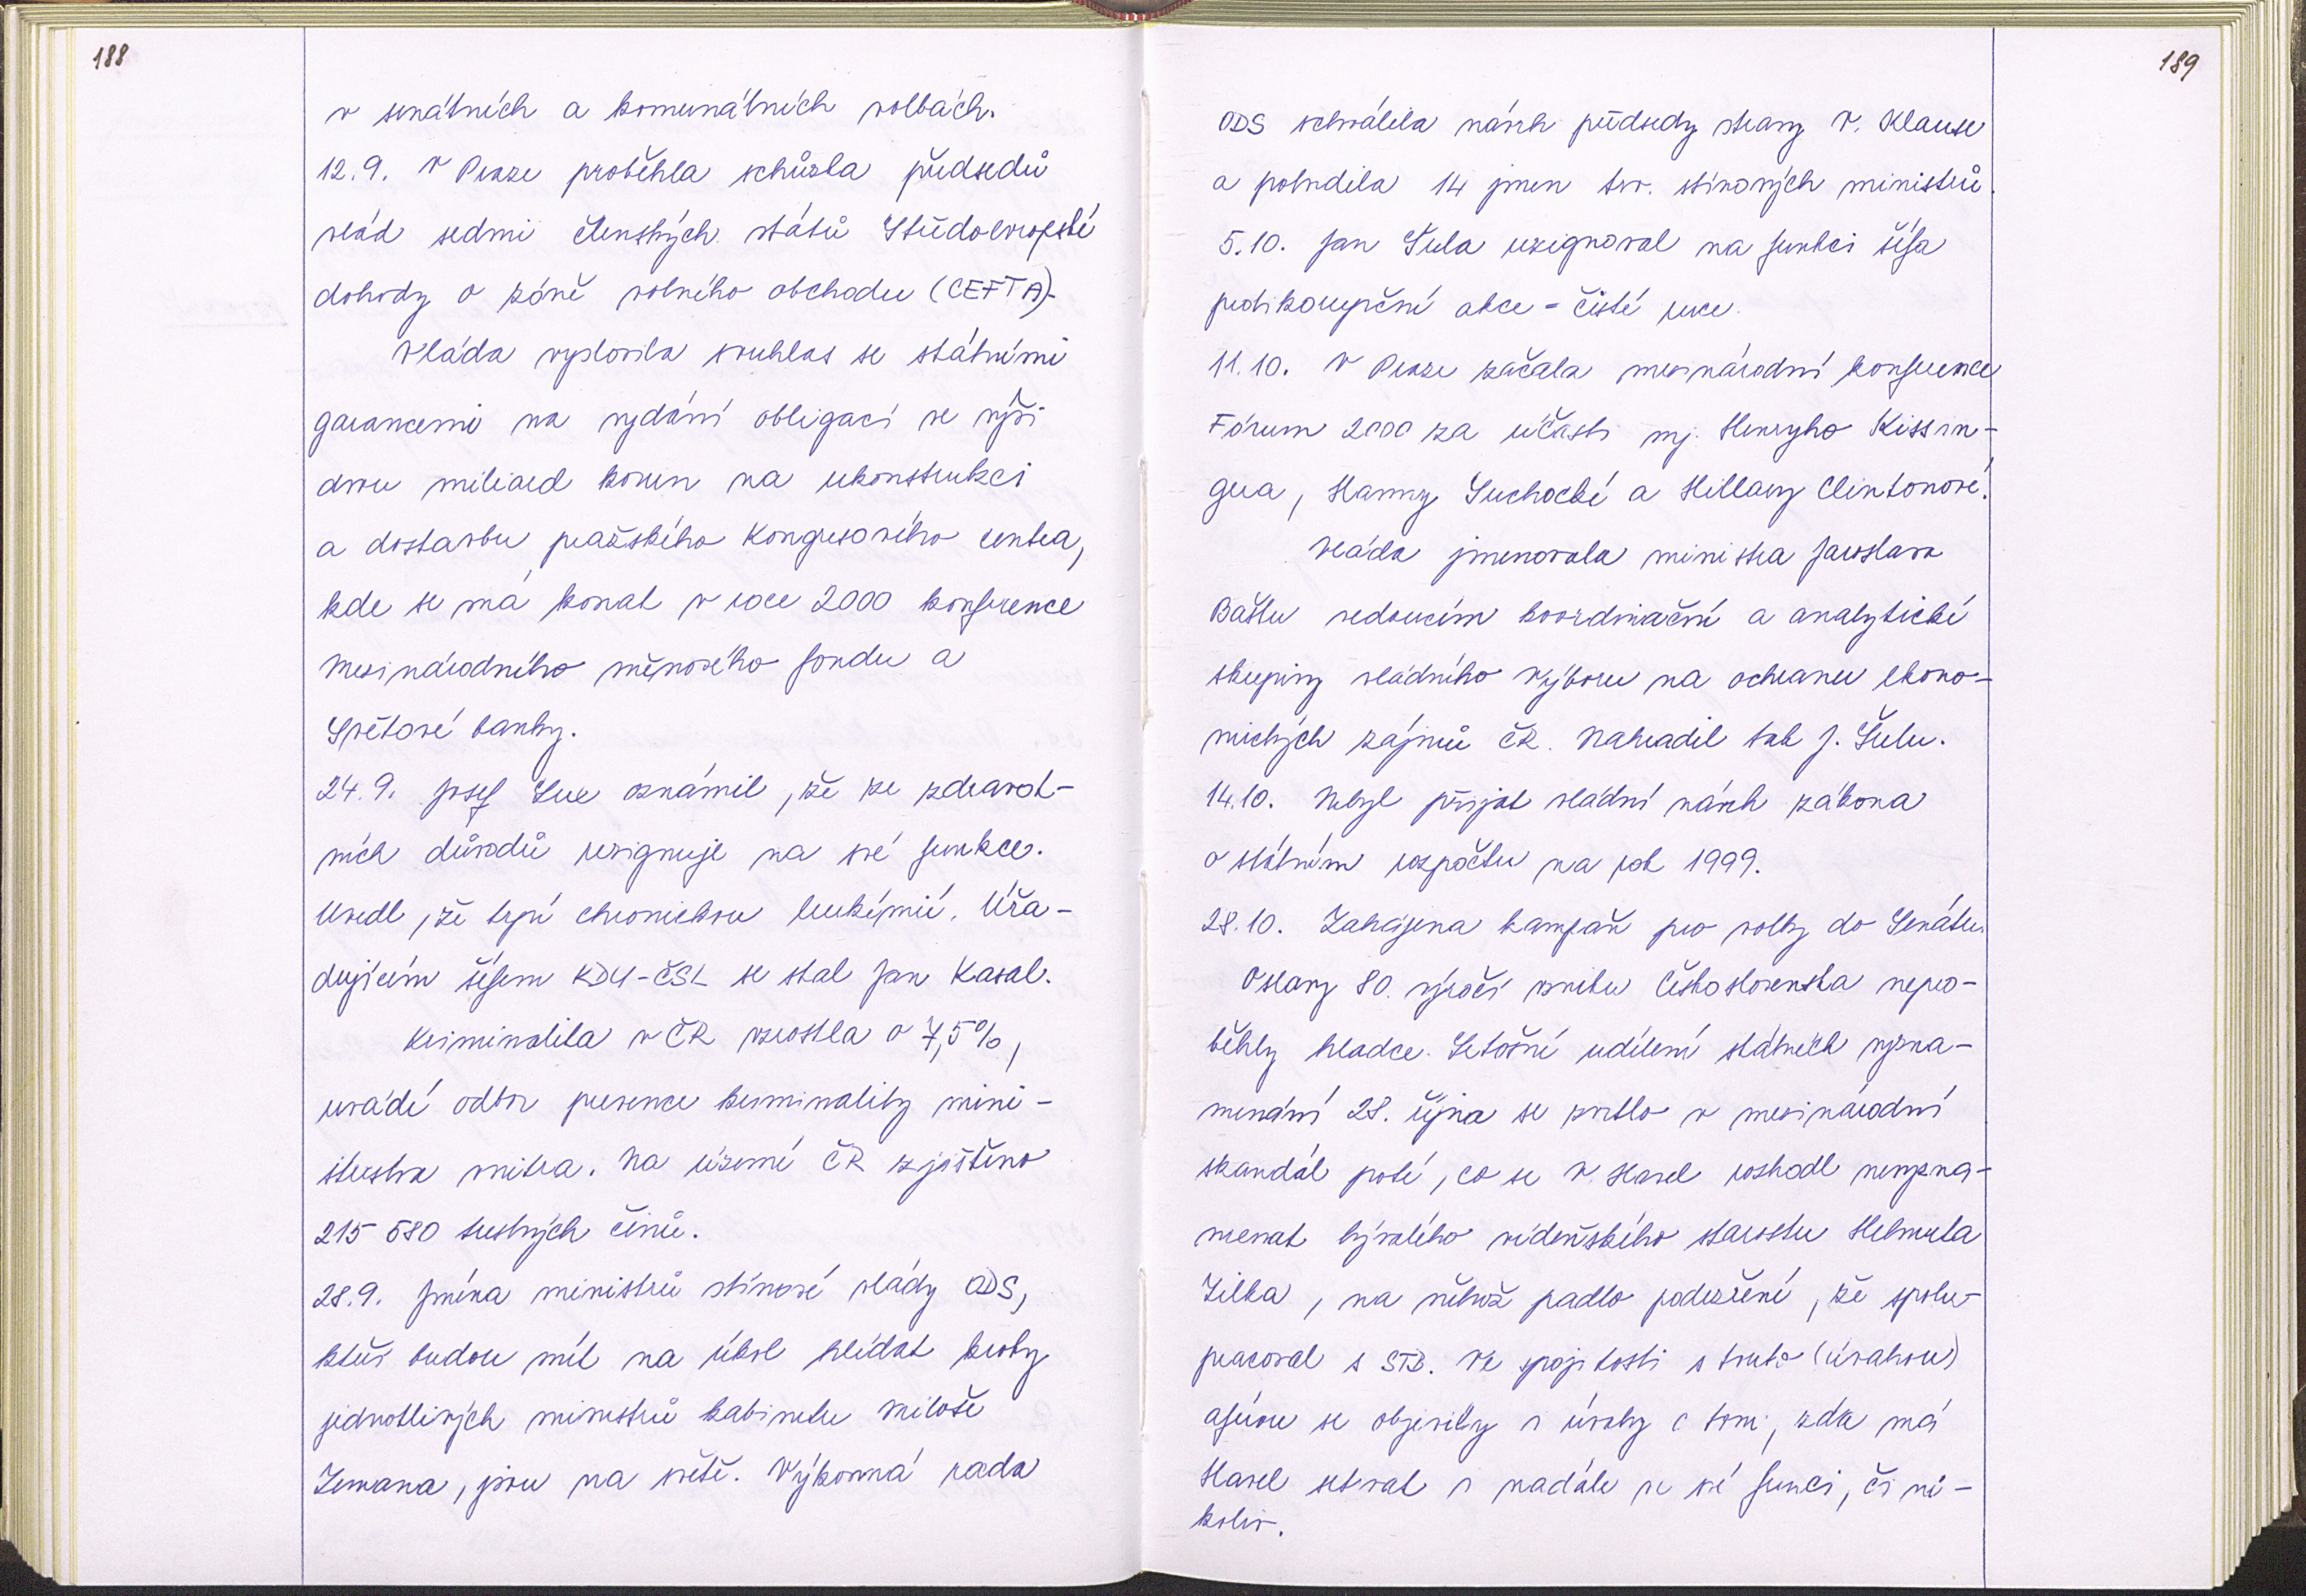 188
v senátních a komunálních volbách.
12.9. V Praze proběhla schůzka předsedů
vlád sedmi členských států Středoevropské
dohody o zóně volného obchodu (CEFTA).
Vláda vyslovila souhlas se státními
garancemi na vydání obligací ve výši
dvou miliard korun na rekonstrukci
a dostavbu pražského Kongresového centra,
kde se má konat v roce 2000 konference
Mezinárodního měnového fondu a
Světové banky.
24.9. Josef Lux oznámil, že ze zdravot-
ních důvodů rezignuje na své funkce.
Uvedl, že trpí chronickou leukémií. Úřa-
dujícím šéfem KDU-ČSL se stal Jan Kasal.
Kriminalita v ČR vzrostla o 7,5%,
uvádí odbor prevence kriminality mini-
sterstva vnitra. Na území ČR zjištěno
215 580 trestných činů.
28.9. Jména ministrů stínové vlády ODS,
kteří budou mít na úkol hlídat kroky
jednotlivých ministrů kabinetu Miloše
Zemana, jsou na světě. Výkonná rada
189
ODS schválila návrh předsedy strany V. Klause
a potvrdila 14 jmen tzv. stínových ministrů.
5.10. Jan Šula rezignoval na funkci šéfa
protikorupční akce - čisté ruce.
11.10. V Praze začala mezinárodní konference
Fórum 2000 za účasti mj. Henryho Kissin-
gera, Hanny Suchocké a Hillary Clintonové.
Vláda jmenovala ministra Jaroslava
Baštu vedoucím koordinační a analytické
skupiny vládního Výboru na ochranu ekono-
mických zájmů ČR. Nahradil tak J. Šulu.
14.10. Nebyl přijat vládní návrh zákona
o státním rozpočtu na rok 1999.
28.10. Zahájena kampaň pro volby do Senátu.
Oslavy 80. výročí vzniku Československa nepro-
běhly hladce. Letošní udílení státních vyzna-
menání 28. října se zvrtlo v mezinárodní
skandál poté, co se V. Havel rozhodl nevyzna-
menat bývalého vídeňského starostu Helmuta
Zilka, na něhož padlo podezření, že spolu-
pracoval s STB. Ve spojitosti s touto (úvahou)
aférou se objevily i úvahy o tom, zda má
Havel setrvat i nadále ve své funci, či ni-
koliv.